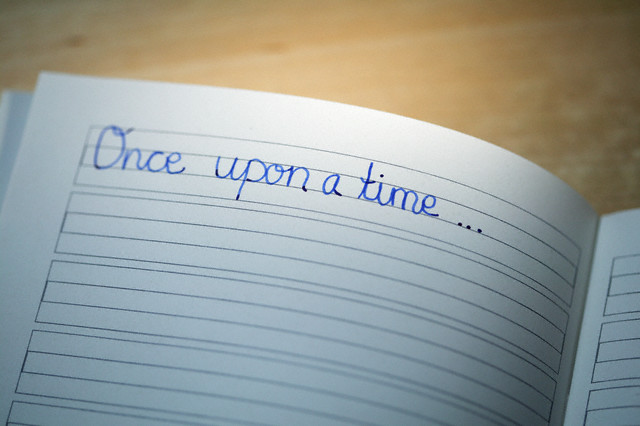 Once upon a time ...